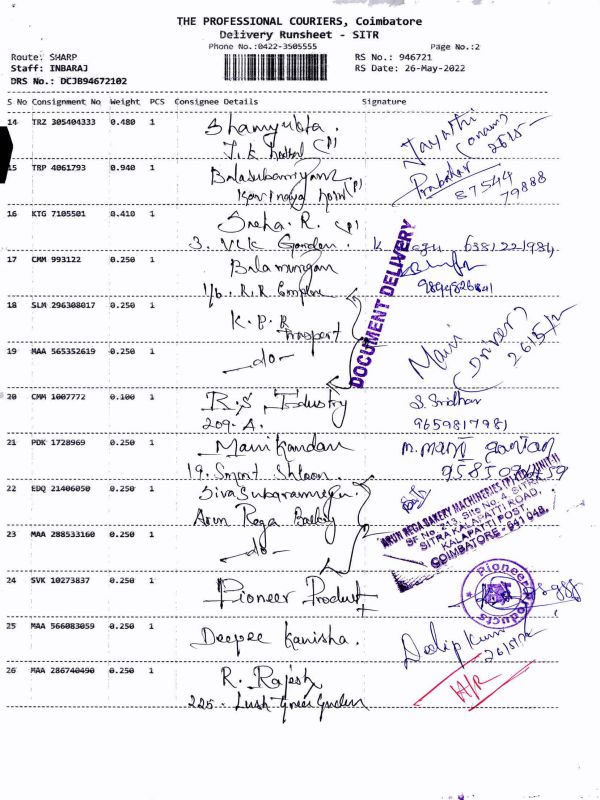 THE PROFESSIONAL COURIERS, Coimbatore
Delivery Runsheet - SITR
Phone No.:0422-3505555 Page No.:2
Route: SHARP RS No.: 946721
Staff: INBARAJ RS Date: 26-May-2022
DRS No.: DCJB94672102
S No Consignment No Weight PCS Consignee Details Signature
14 TRZ 305404333 0.480 1 Shamyukta.
15 TRP 4061793 0.940 1 Balasubamiyam
Prabahar
87544
79888
16 KTG 7105501 0.410 1 Sneha. R. (P)
3. VLK Garden. 6381221984.
17 CMM 993122 0.250 1 Balamurugan
1/6. R.R
DOCUMENT DELIVERY
18 SLM 296308017 0.250 1 K.P.R
Transport
Mani
(Driver)
26/5/22
19 MAA 565352619 0.250 1 -do-
20 CMM 1007772 0.100 1 R.S Industry S. Sridhar
209-A. 9659817981
21 PDK 1728969 0.250 1 Manikandan
22 EDQ 21406050 0.250 1
Arun Rega Bakery
ARUN REGA BAKERY MACHINERIES (P) LTD, UNIT II
SF No. 213, Site No. 4, SITRA
SITRA KALAPATTI ROAD,
KALAPATTI POST,
COIMBATORE - 641 048.
23 MAA 288533160 0.250 1 -do-
24 SVK 10273837 0.250 1 Pioneer Product
Pioneer Products
25 MAA 566083059 0.250 1 Deepee Kanisha. Dedip Kum
26/5/22
26 MAA 286740490 0.250 1 R. Rajesh H/R
225. Lush Green Garden